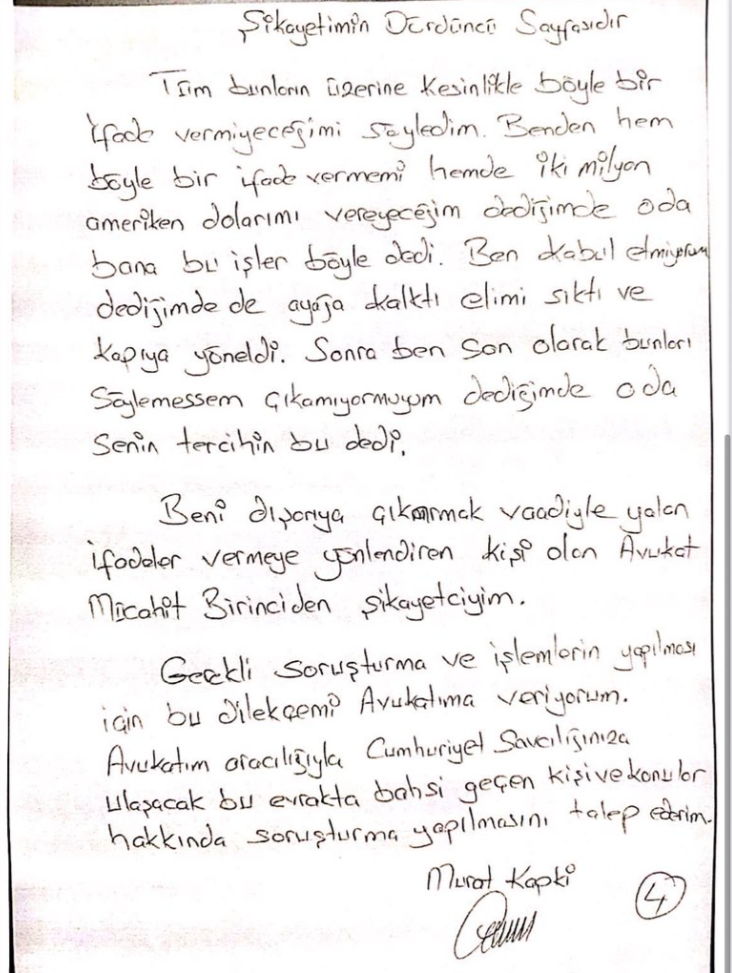 Şikayetimin Dördüncü Sayfasıdır
Tüm bunların üzerine kesinlikle böyle bir
ifade vermiyeceğimi söyledim. Benden hem
böyle bir ifade vermemi hemde iki milyon
ameriken dolarımı vereyeceğim dediğimde oda
bana bu işler böyle dedi. Ben kabul etmiyorum
dediğimde de ayağa kalktı elimi sıktı ve
kapıya yöneldi. Sonra ben son olarak bunları
Söylemessem çıkamıyormuyum dediğimde oda
senin tercihin bu dedi.
Beni dışarıya çıkarmak vaadiyle yalan
ifadeler vermeye yönlendiren kişi olan Avukat
Mücahit Birinciden şikayetciyim.
Gerekli soruşturma ve işlemlerin yapılması
için bu dilekçemi Avukatıma veriyorum.
Avukatım aracılığıyla Cumhuriyet Savcılığınıza
ulaşacak bu evrakta bahsi geçen kişi ve konular
hakkında soruşturma yapılmasını talep ederim.
Murat Kapki
4